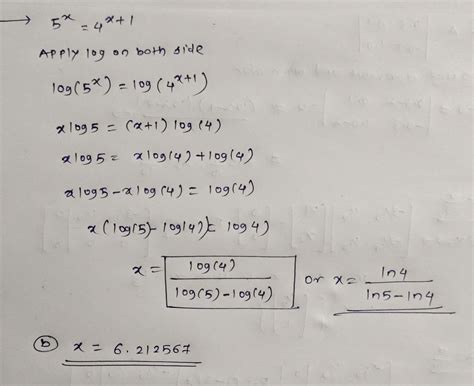 → 5^x = 4^x+1
Apply log on both side
log(5^x) = log(4^x+1)
x log 5 = (x+1) log (4)
x log 5 = x log(4) + log(4)
x log 5 - x log (4) = log(4)
x (log(5) - log(4)) = log 4)
x = log(4) / log(5) - log(4) or x = ln 4 / ln 5 - ln 4
(b) x = 6.212567